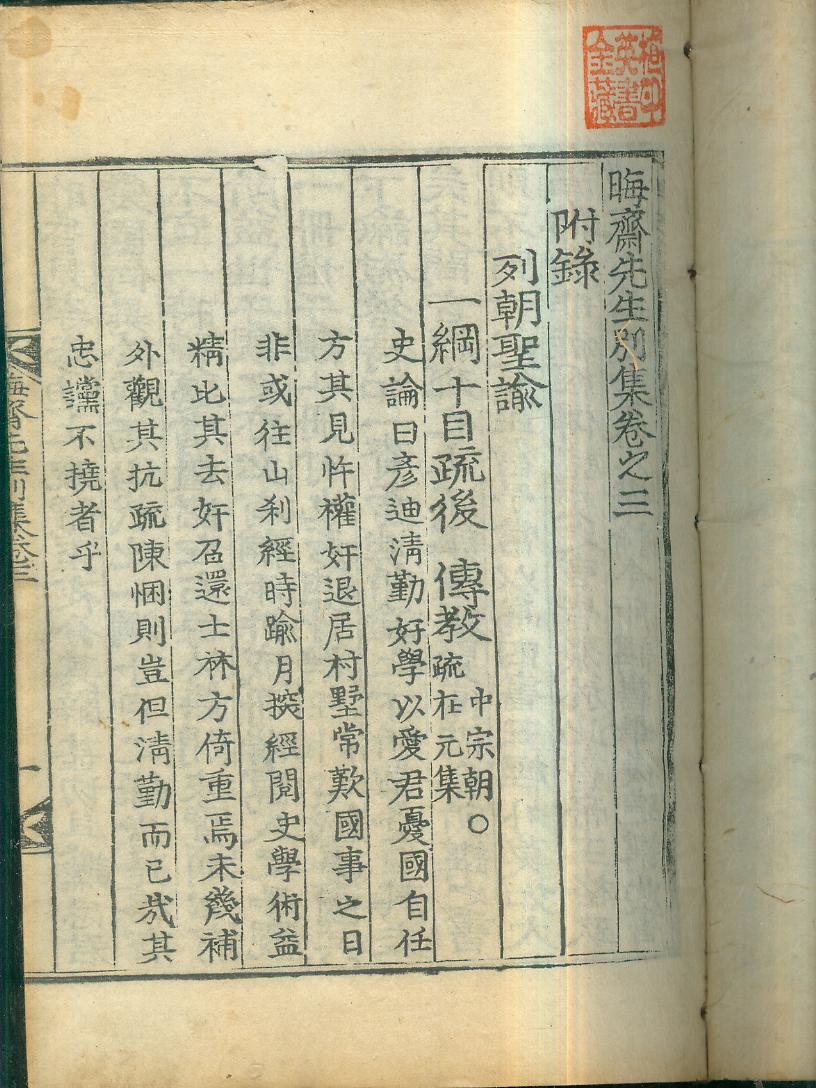 晦齋先生別集卷之三
附錄
列朝聖諭
一綱十目疏後 傳教 中宗朝○
疏在元集
史論曰彦迪淸勤好學以愛君憂國自任
方其見忤權奸退居村墅常歎國事之日
非或往山刹經時踰月抜經閱史學術益
精比其去奸召還士林方倚重焉未幾補
外觀其抗疏陳悃則豈但淸勤而已㢤其
忠讜不撓者乎
晦齋先生別集卷三
一
英書
全藏